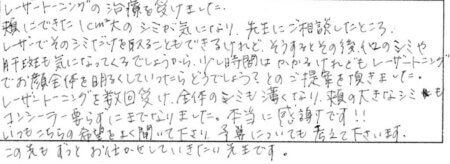 レーザートーニングの治療を受けました。
頬にできた1cm大のシミが気になり、先生にご相談したところ、
レーザーでそのシミだけを取ることもできるけれど、そうするとその後、他のシミや
肝斑も気になってくるでしょうから、少し時間はかかるけれどもレーザートーニング
でお顔全体を明るくしていったらどうでしょう？とのご提案を頂きました。
レーザートーニングを数回受け、全体のシミも薄くなり、頬の大きなシミも
コンシーラー要らずにまでなりました。本当に感謝です!!
いつもこちらの希望をよく聞いて下さり、予算についても考えて下さいます。
この先もずっとお任せしていきたい先生です。